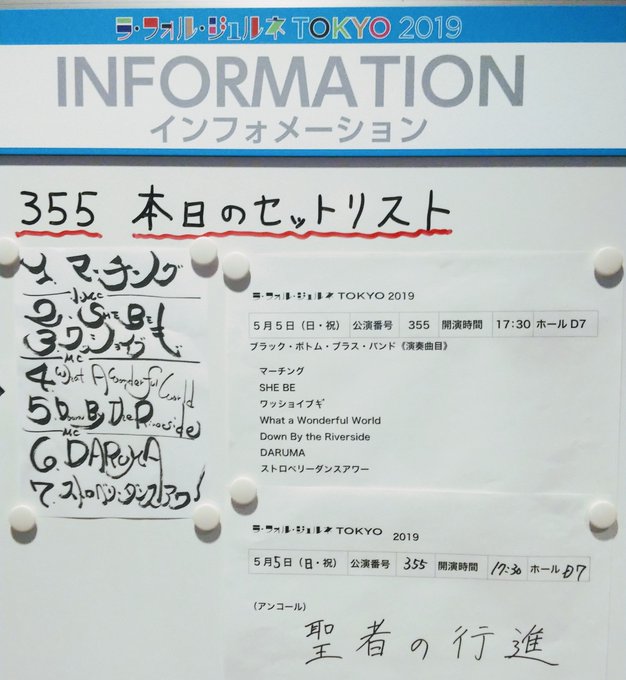 ラ・フォル・ジュルネ TOKYO 2019
INFORMATION
インフォメーション
355 本日のセットリスト
1. マーチング
MC
2. SHE BE!
3. ワッショイブギ
MC
4. What A Wonderful World
5. Down By The Riverside
MC
6. DARUMA
7. ストロベリーダンスアワー
ラ・フォル・ジュルネ TOKYO 2019
5月5日（日・祝） 公演番号 355 開演時間 17:30 ホールD7
ブラック・ボトム・ブラス・バンド《演奏曲目》
マーチング
SHE BE
ワッショイブギ
What a Wonderful World
Down By the Riverside
DARUMA
ストロベリーダンスアワー
ラ・フォル・ジュルネ TOKYO 2019
5月5日（日・祝） 公演番号 355 開演時間 17:30 ホール D7
（アンコール）
聖者の行進